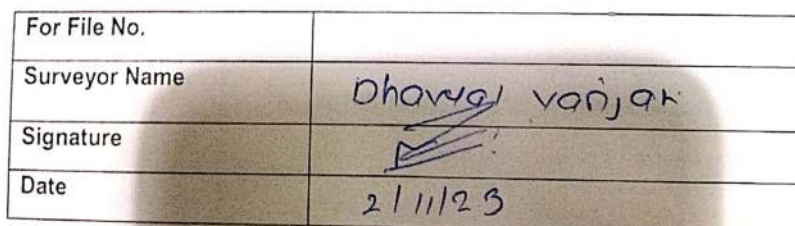 For File No.
Surveyor Name Dhaval Vanjar
Signature
Date 2/11/23